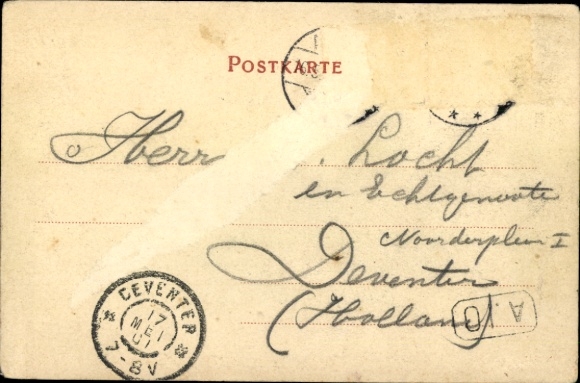 POSTKARTE
Herr . Locht
en Echtgenoote
Noorderplein I
Deventer
(Holland)
DEVENTER
17
MEI
01
7-8V
A
O